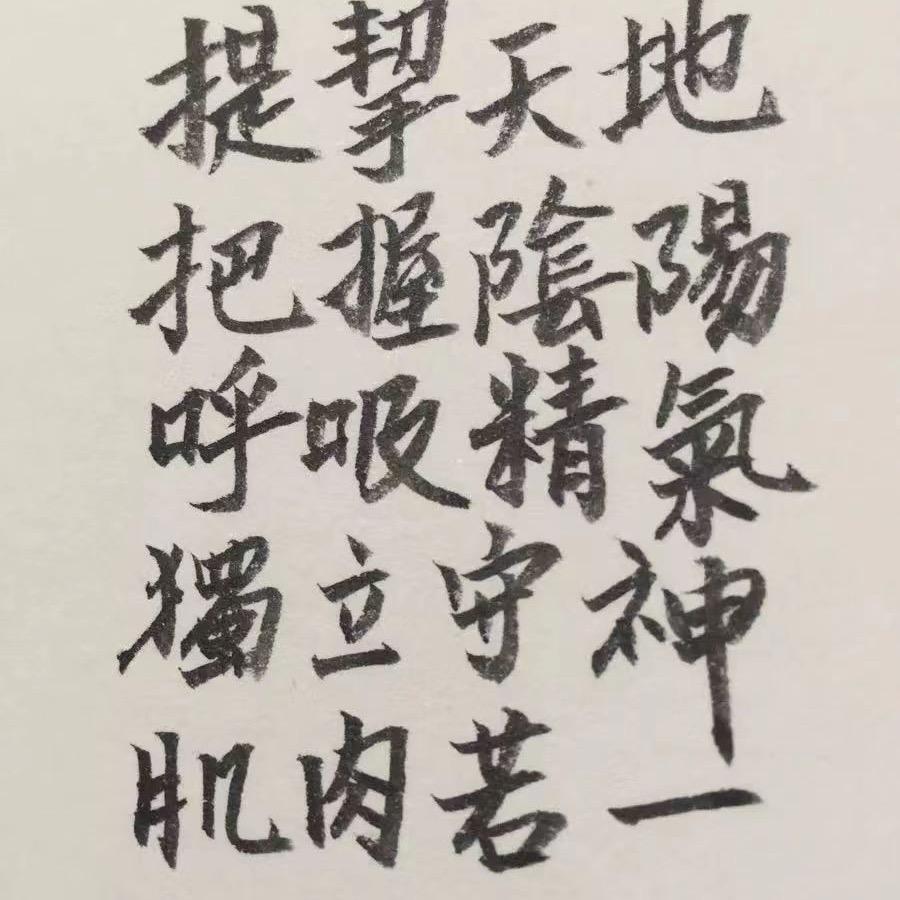 提挈天地
把握陰陽
呼吸精氣
獨立守神
肌肉若一